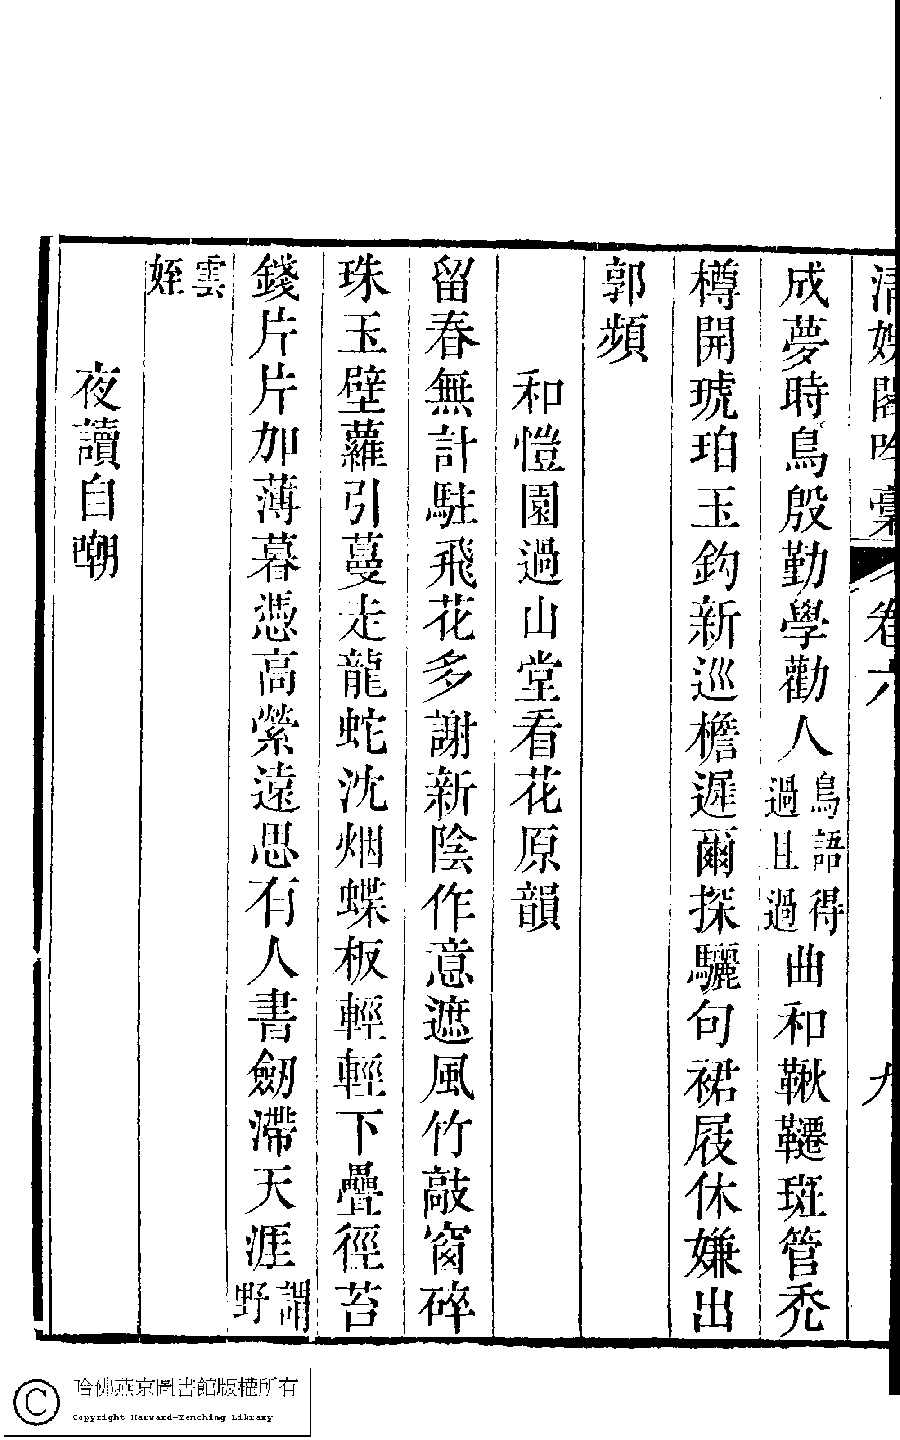 清娛閣吟稾 卷六 九
成夢時鳥殷勤學勸人鳥語得過且過曲和鞦韆斑管禿
樽開琥珀玉鈎新巡檐遲爾探驪句裙屐休嫌出
郭頻
和愷園過山堂看花原韻
留春無計駐飛花多謝新陰作意遮風竹敲窗碎
珠玉壁蘿引蔓走龍蛇沈烟蝶板輕輕下疊徑苔
錢片片加薄暮憑高縈遠思有人書劒滯天涯謂野
雲姪
夜讀自嘲
哈佛燕京圖書館版權所有
Copyright Harvard-Yenching Library